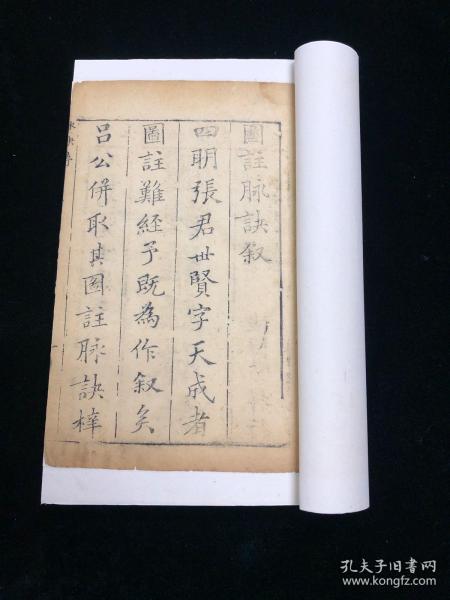 圖註脉訣叙
四明張君世賢字天成者
圖註難經予既為作叙矣
吕公併取其圖註脉訣梓
孔夫子旧书网
www.kongfz.com